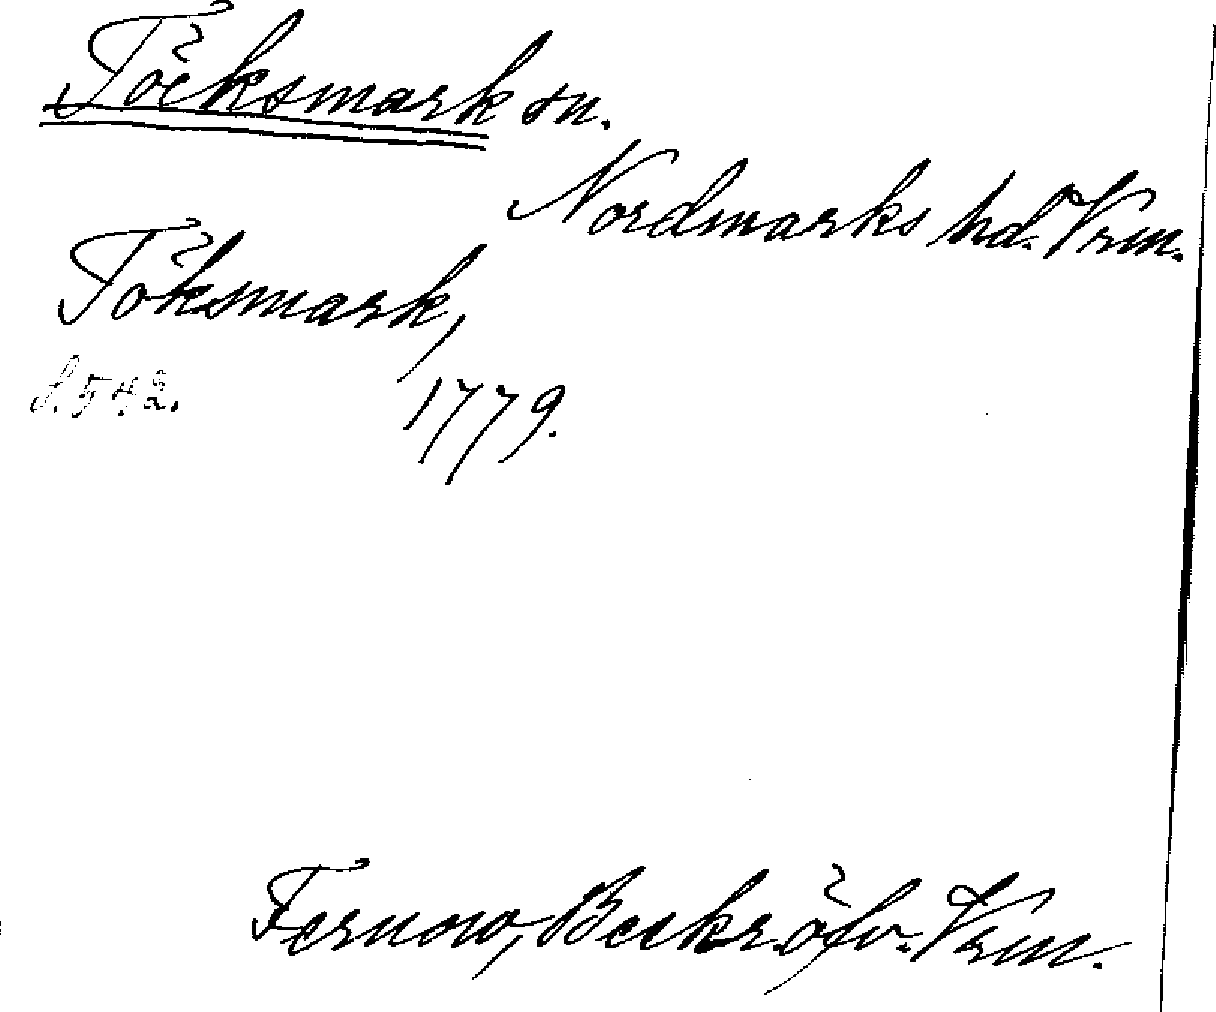 Töcksmark sn.
Nordmarks hd. Vrm.
Töksmark,
S. 542. 1779.
Fernow, Beskr. öfv. Vrm.